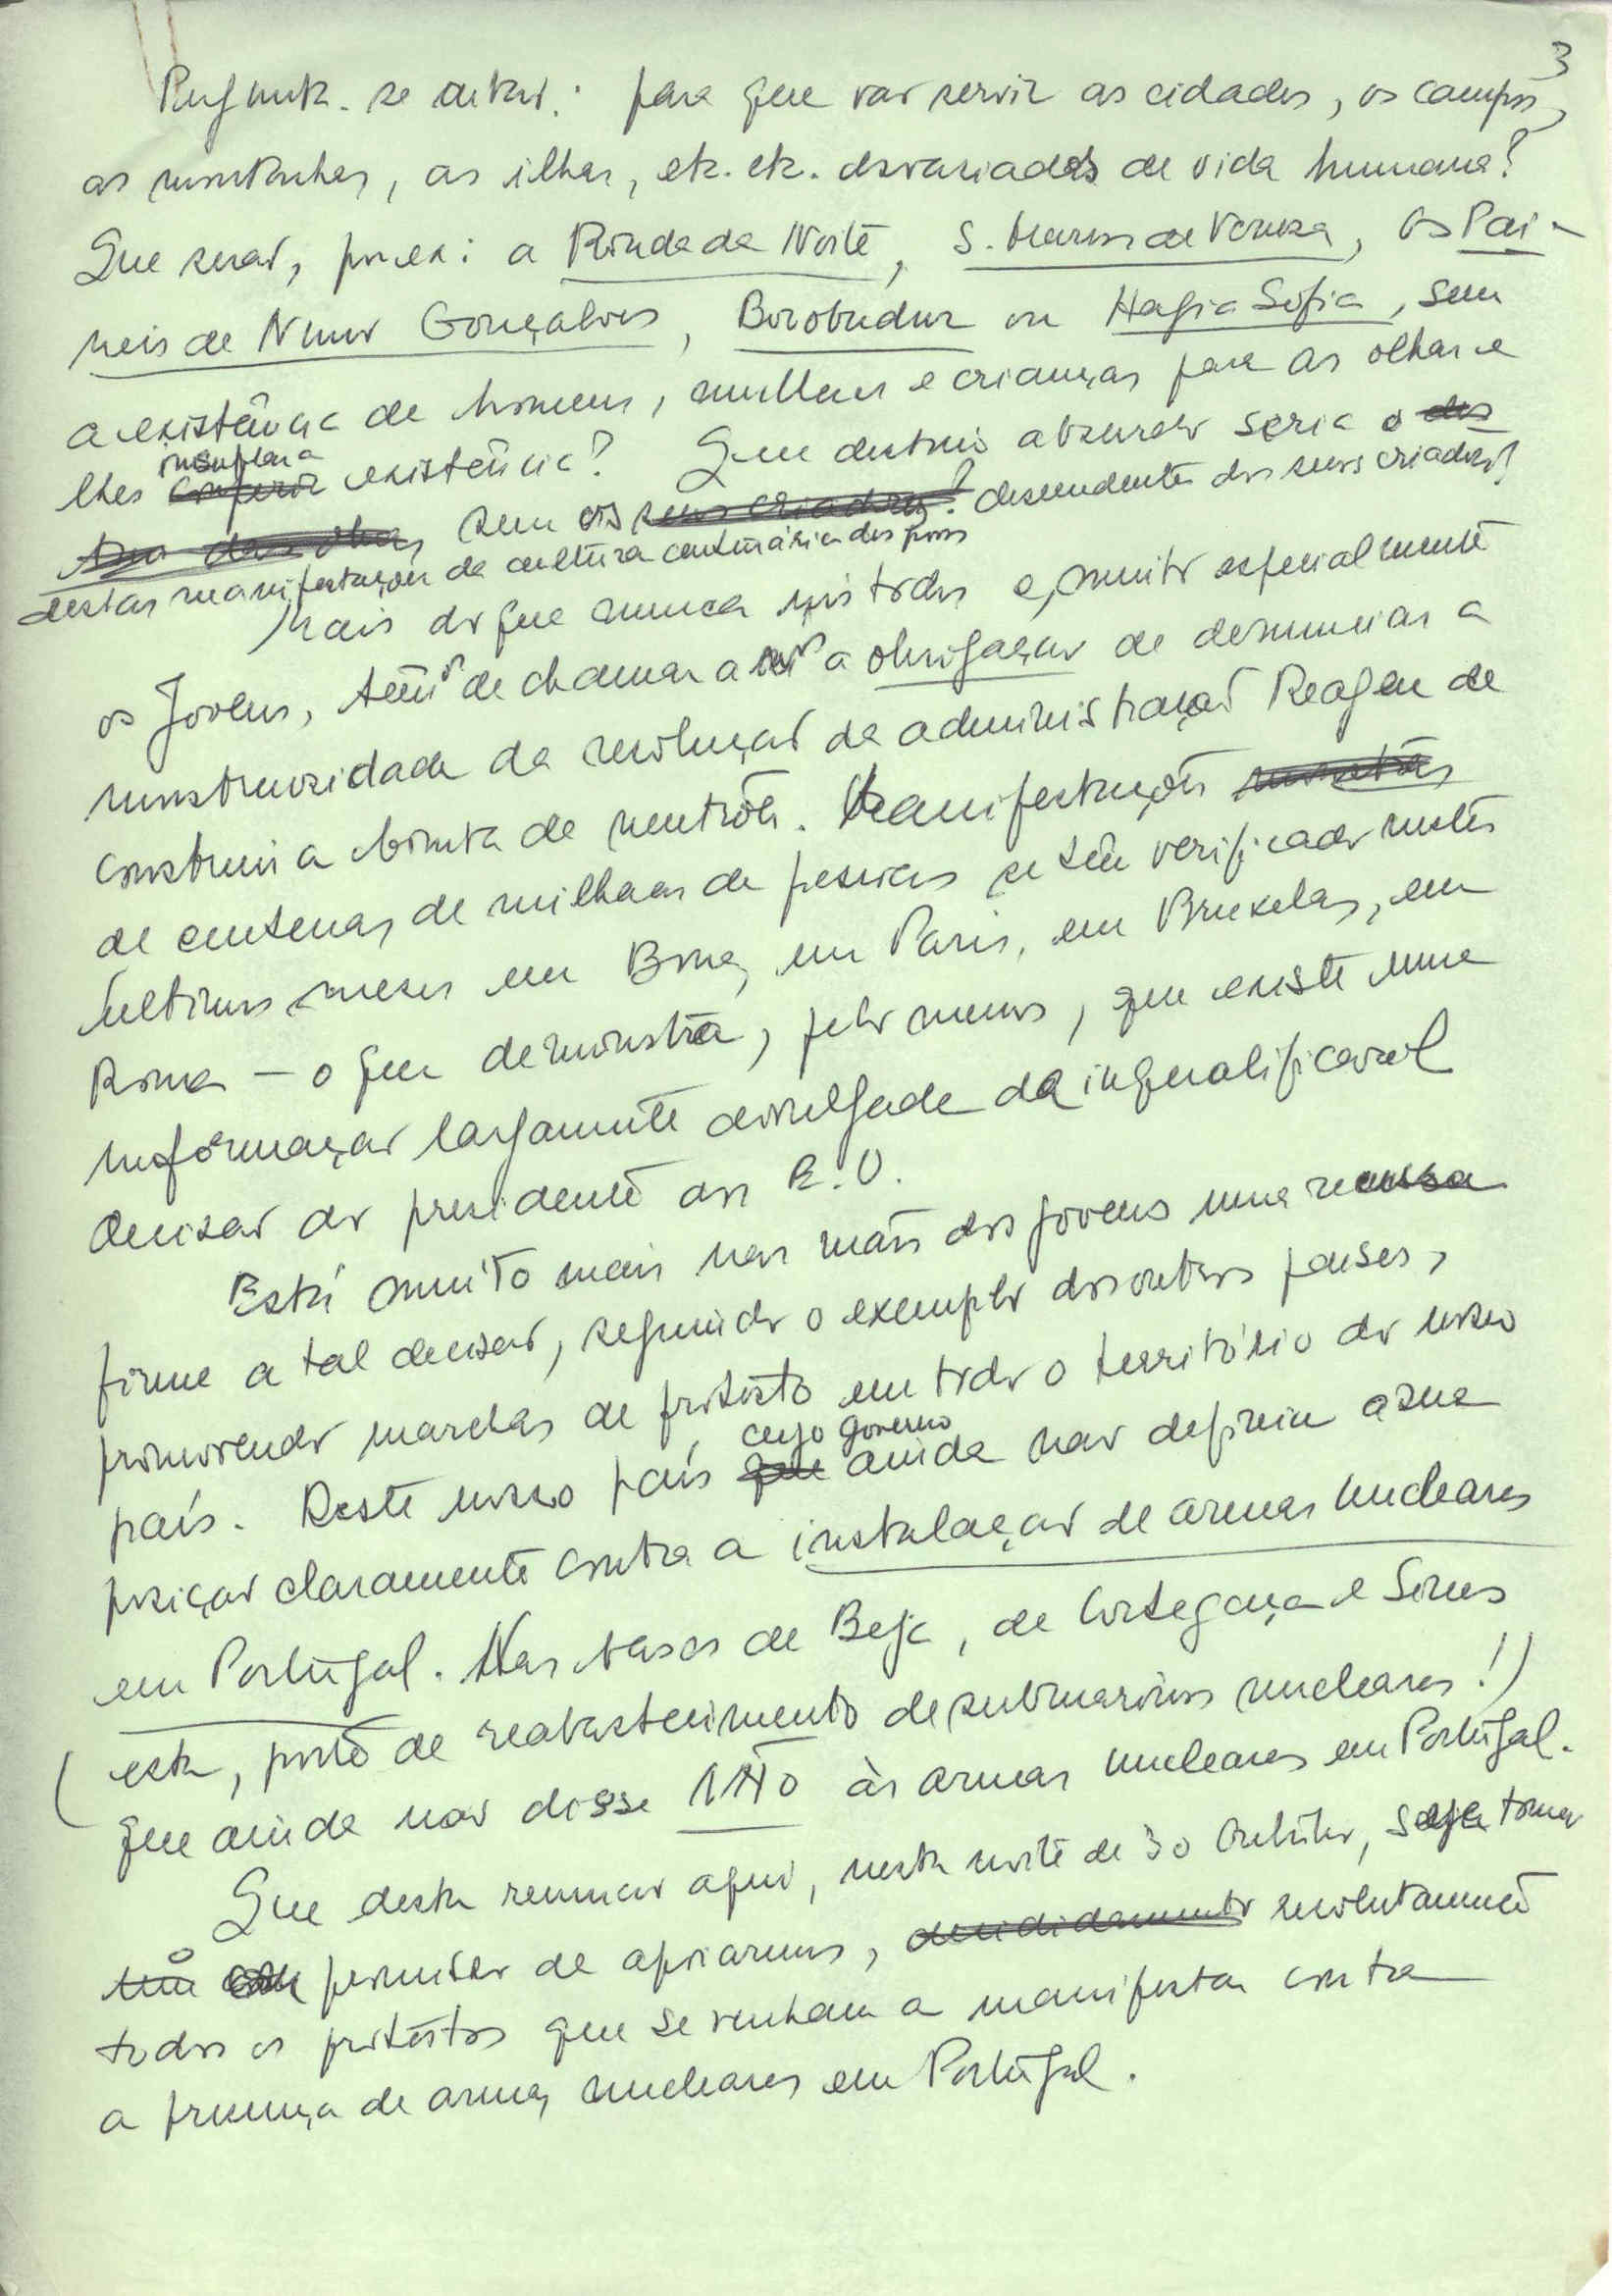 3
Pergunta-se então: para que vão servir as cidades, os campos,
as montanhas, as ilhas, etc. etc. esvaziadas de vida humana?
Que será, por ex: a Ronda da Noite, S. Marcos de Veneza, Os Pai-
neis de Nuno Gonçalves, Borobudur ou Hagia Sofia, sem
a existência de homens, mulheres e crianças para as olhar e
insuflar a
lhes conferir existência? Que destino absurdo seria o des
sem os seus criadores? descendentes dos seus criadores?
destas manifestações da cultura centenária dos povos
Mais do que nunca nós todos e, muito especialmente
os Jovens, temos de chamar a nós a obrigação de denunciar a
monstruosidade da resolução da administração Reagan de
construir a bomba de neutrões. Manifestações
de centenas de milhares de pessoas se têm verificado nestes
últimos meses em Bona, em Paris, em Bruxelas, em
Roma — o que demonstra, pelo menos, que existe uma
informação largamente divulgada da inqualificável
decisão do presidente dos E.U.
Está muito mais nas mãos dos jovens uma recusa
firme a tal decisão, seguindo o exemplo dos outros países,
promovendo marchas de protesto em todo o território do nosso
cujo governo
país. Deste nosso país que ainda não definiu a sua
posição claramente contra a instalação de armas nucleares
em Portugal. Nas bases de Beja, de Cortegaça e Sines
(esta, porto de reabastecimento de submarinos nucleares!)
que ainda não disse NÃO às armas nucleares em Portugal.
Que desta reunião aqui, nesta noite de 30 Outubro, seja tomado
o
um permitir de apoiarmos, decididamente resolutamente
todos os protestos que se venham a manifestar contra
a presença de armas nucleares em Portugal.